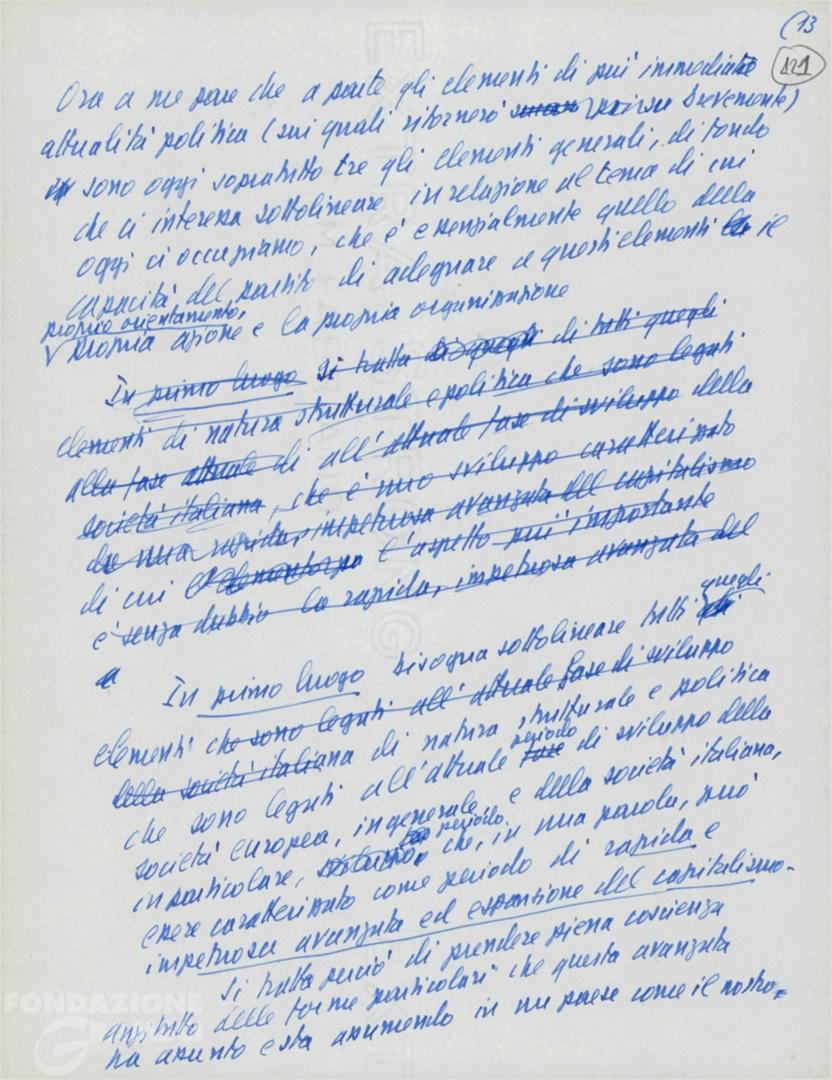 (13
121
Ora a me pare che a parte gli elementi di piú immediata
attualitá politica (sui quali ritorneró poi brevemente)
sono oggi sopratutto tre gli elementi generali, di fondo
che ci interessa sottolineare in relazione al tema di cui
oggi ci occupiamo, che é essenzialmente quello della
capacitá del partito di adeguare a questi elementi la il
proprio orientamento,
propria azione e la propria organizzazione
In primo luogo si tratta di quegli di tutti quegli
elementi di natura strutturale e politica che sono legati
alla fase attuale di all'attuale fase di sviluppo della
societá italiana, che é uno sviluppo caratterizzato
da una rapida, impetuosa avanzata del capitalismo
di cui é l'aspetto piú importante
é senza dubbio la rapida, impetuosa avanzata del
quegli
In primo luogo bisogna sottolineare tutti gli
elementi che sono legati all'attuale fase di sviluppo
della societá italiana di natura strutturale e politica
periodo
che sono legati all'attuale fase di sviluppo della
societá europea, in generale, e della societá italiana,
periodo
in particolare, sviluppo, che, in una parola, puó
essere caratterizzato come periodo di rapida e
impetuosa avanzata ed espansione del capitalismo.
Si tratta perció di prendere piena coscienza
anzitutto delle forme particolari che questa avanzata
ha assunto e sta assumendo in un paese come il nostro.
FONDAZIONE